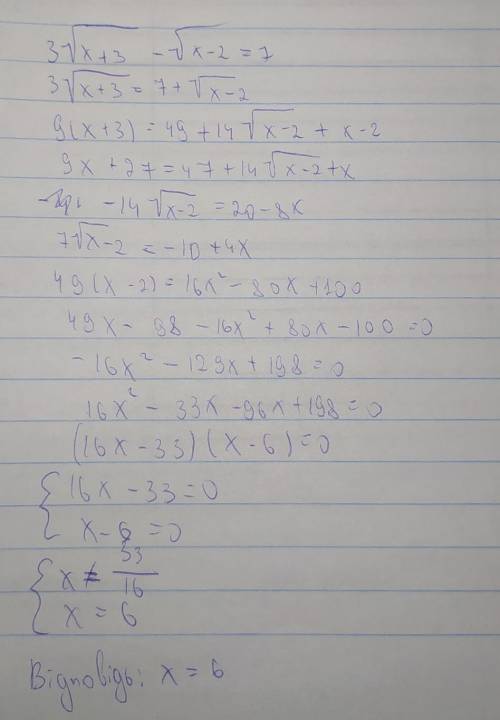 3√(x+3) - √(x-2) = 7
3√(x+3) = 7 + √(x-2)
9(x+3) = 49 + 14√(x-2) + x-2
9x + 27 = 47 + 14√(x-2) + x
-14√(x-2) = 20-8x
7√x-2 = -10 + 4x
49(x-2) = 16x² - 80x + 100
49x - 98 - 16x² + 80x - 100 = 0
-16x² - 129x + 198 = 0
16x² - 33x - 96x + 198 = 0
(16x - 33)(x - 6) = 0
{ 16x - 33 = 0
x - 6 = 0
{ x ≠ 33/16
x = 6
Відповідь: x = 6